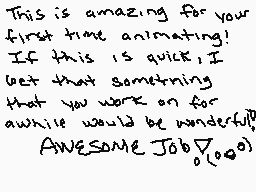 This is amazing for your
first time animating!
If this is quick, I
bet that something
that you work on for
awhile would be wonderful!
AWESOME JOB!